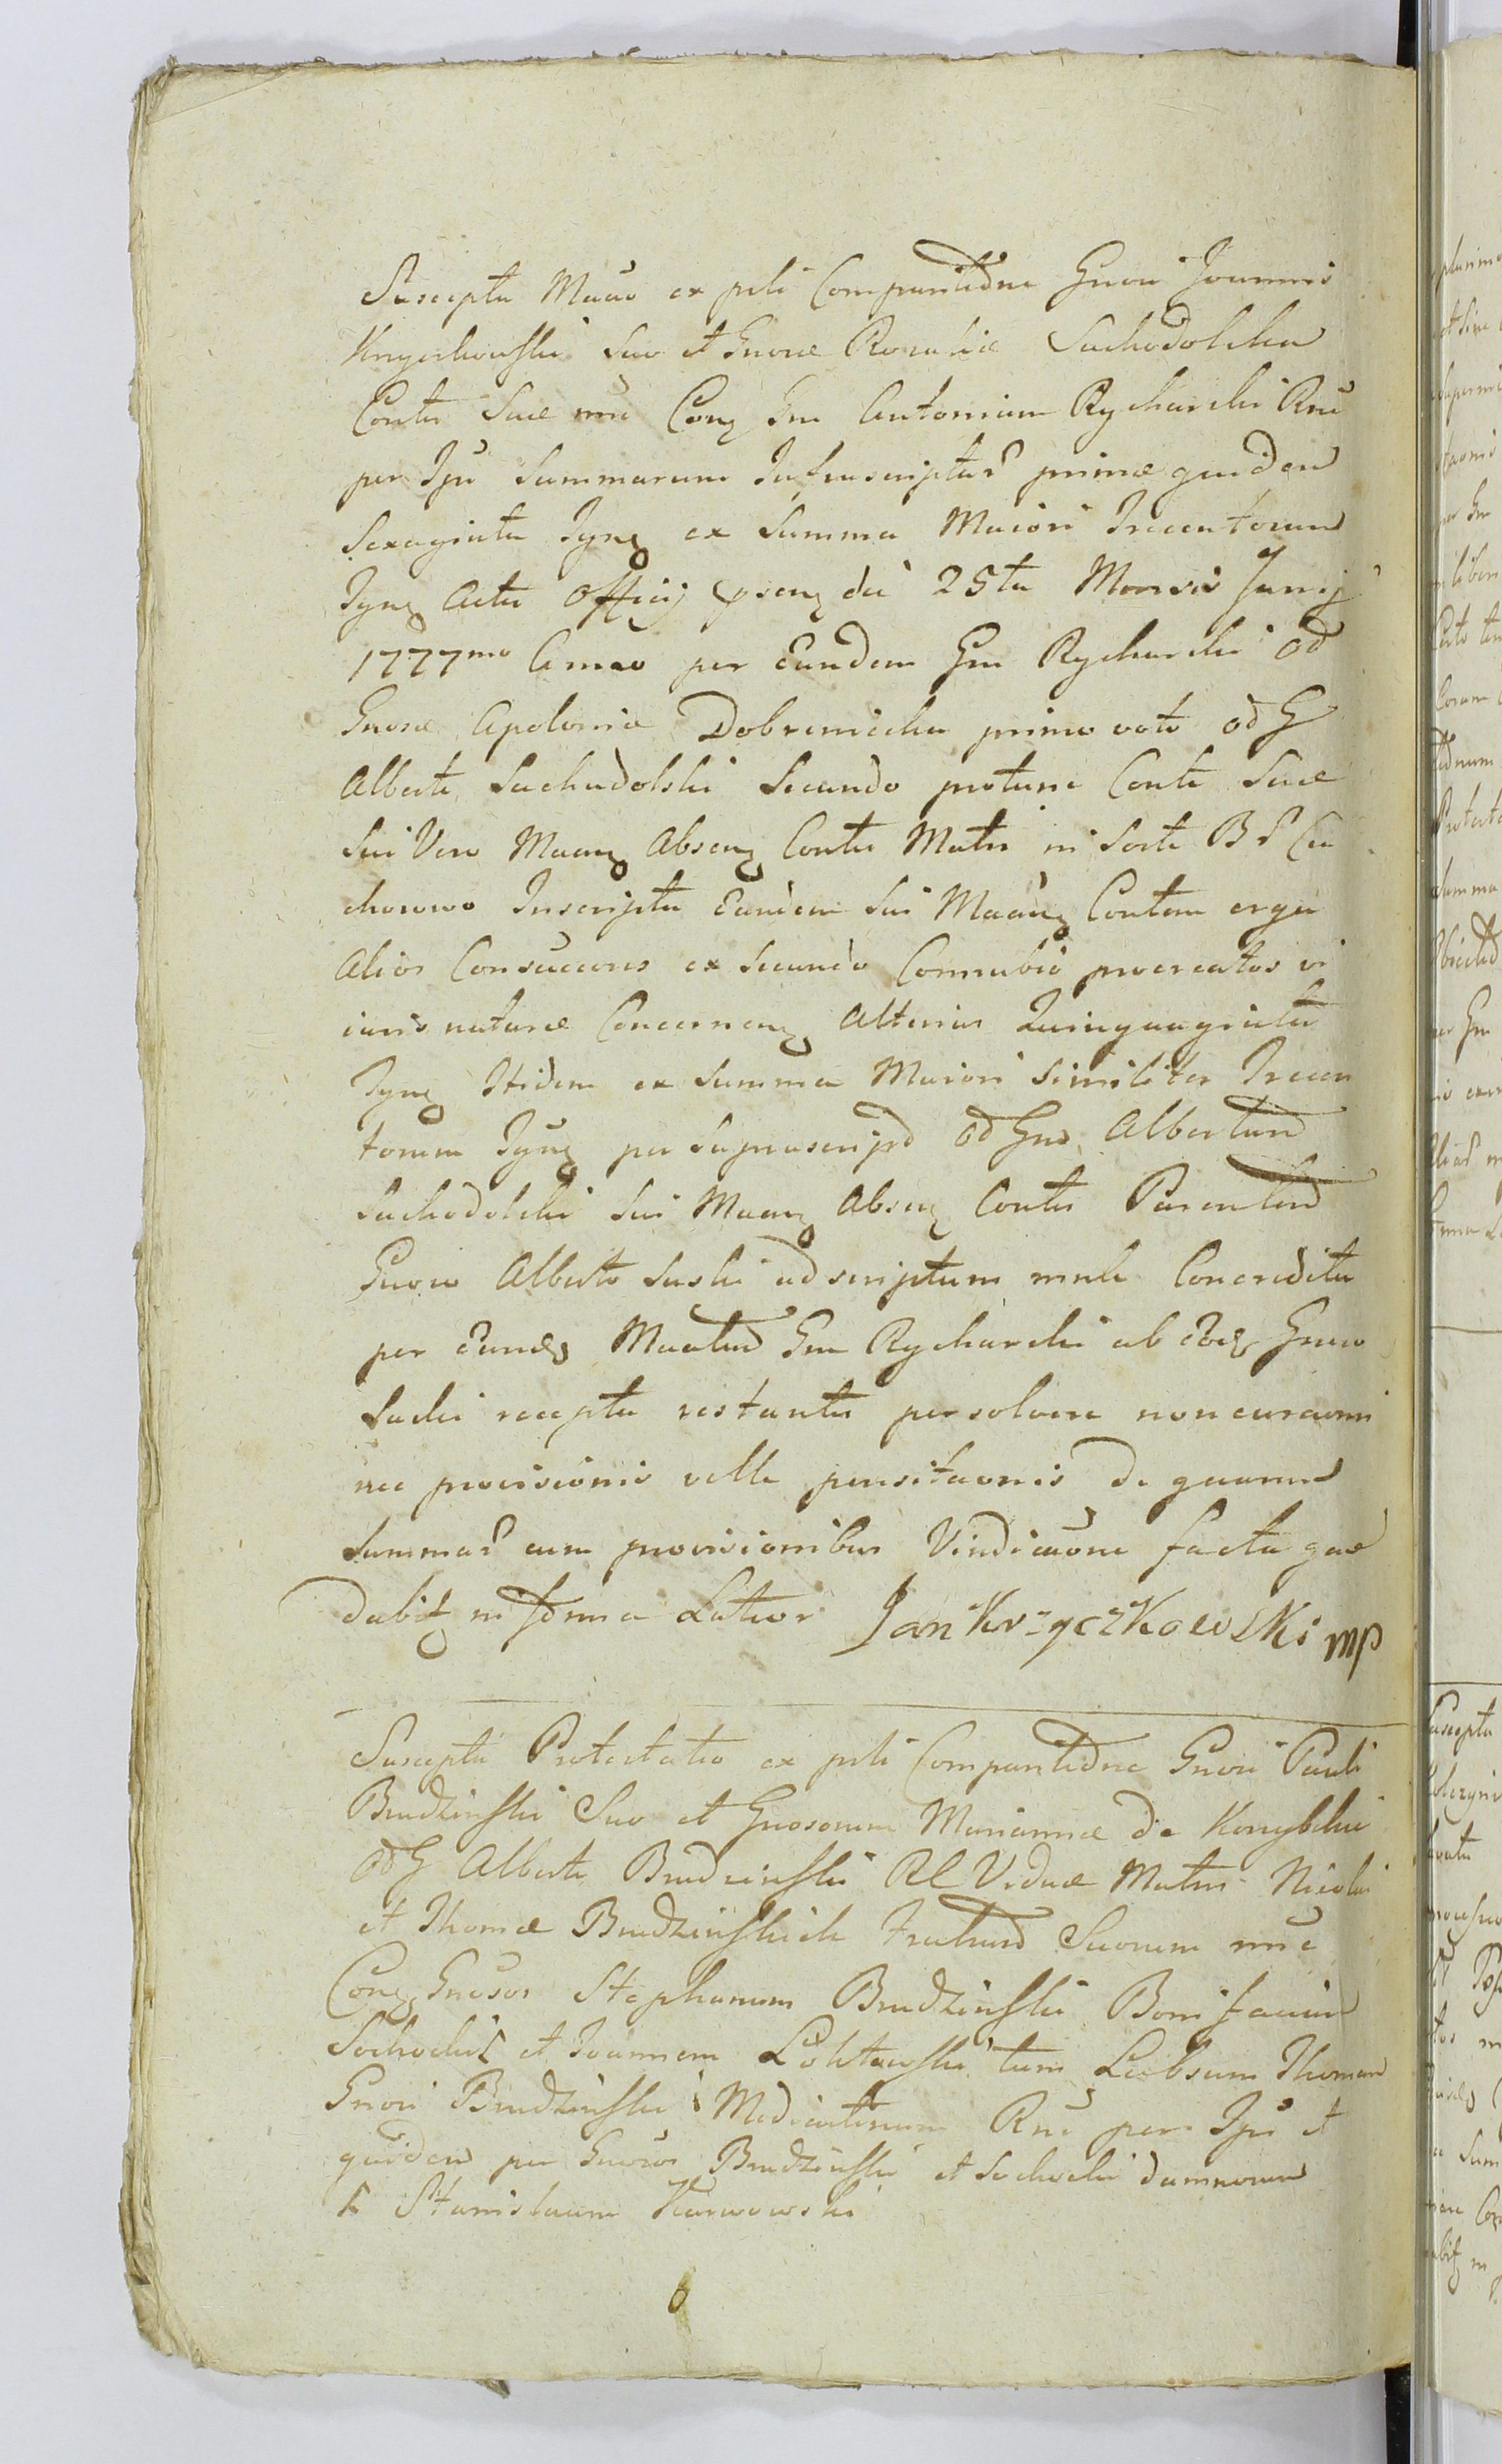 Suscepta Maāo ex pti Compartidne Gnosi Joannis
Krzyczkowski suo et Gnosae Rosaliae Suchodolska
Contis Suae nne Conz Gm Antonium Rycharski Rnē
per Ipū Summarum Infrascriptar primae quidem
Sexaginta Tynz ex Summa Maiori Trecentorum
Tynz Actis Officij psenz die 25ta Mensis Junij
1777mo Anno per Eundem Gm Rycharski Od
Gnosae Apolonia Dobrzeniecka primo voto od G
Alberti Suchodolski Secundo protunc Conti Suae
Sui Vero Maanz Absenz Contis Matri in Sorte B P Cie
chowo Inscripta Eandem Sui Maanz Contem erga
Alios Consuccors ex Secundo Connubio procreatos vi
iuris naturae Concernenz Alterius Quinquaginta
Tynz Itidem ex Summa Maiori Similiter Trecen
torum Tynz per Suprascripd od Gm Albertum
Suchodolski Sui Maanz Absenz Contis Parentem
Gnoso Alberto Suski ad scriptum mnle Concredita
per Eundz Maatum Gm Rycharski ab eodz Gnoso
Suski recepta restantis persolvere non curaoni
nec provisionis velle pensitaonis de quarum
Summar cum provisionibus Vindicaōne facta quae
dabitz in forma Latiori Jan Krzyczkowski mp
Suscepta Protestatio ex pti Compartidne Gnosi Pauli
Brudzinski Suo et Gnosorum Mariannae de
od G Alberti Brudzinski Rl Viduae Matris Nicolai
et Thomae Brudzinskich Fratrum Suorum nnē
Conz Gnōsos Stephanum Brudzinski Bonifacium
Sochocki et Joannem tum Laobsum Thomam
Gnosi Brudzinski Medicatinum Rnē per Ipū et
quidem per Gnosos Brudzinski et Sochocki damnorum
h Stanislaum Karwowski